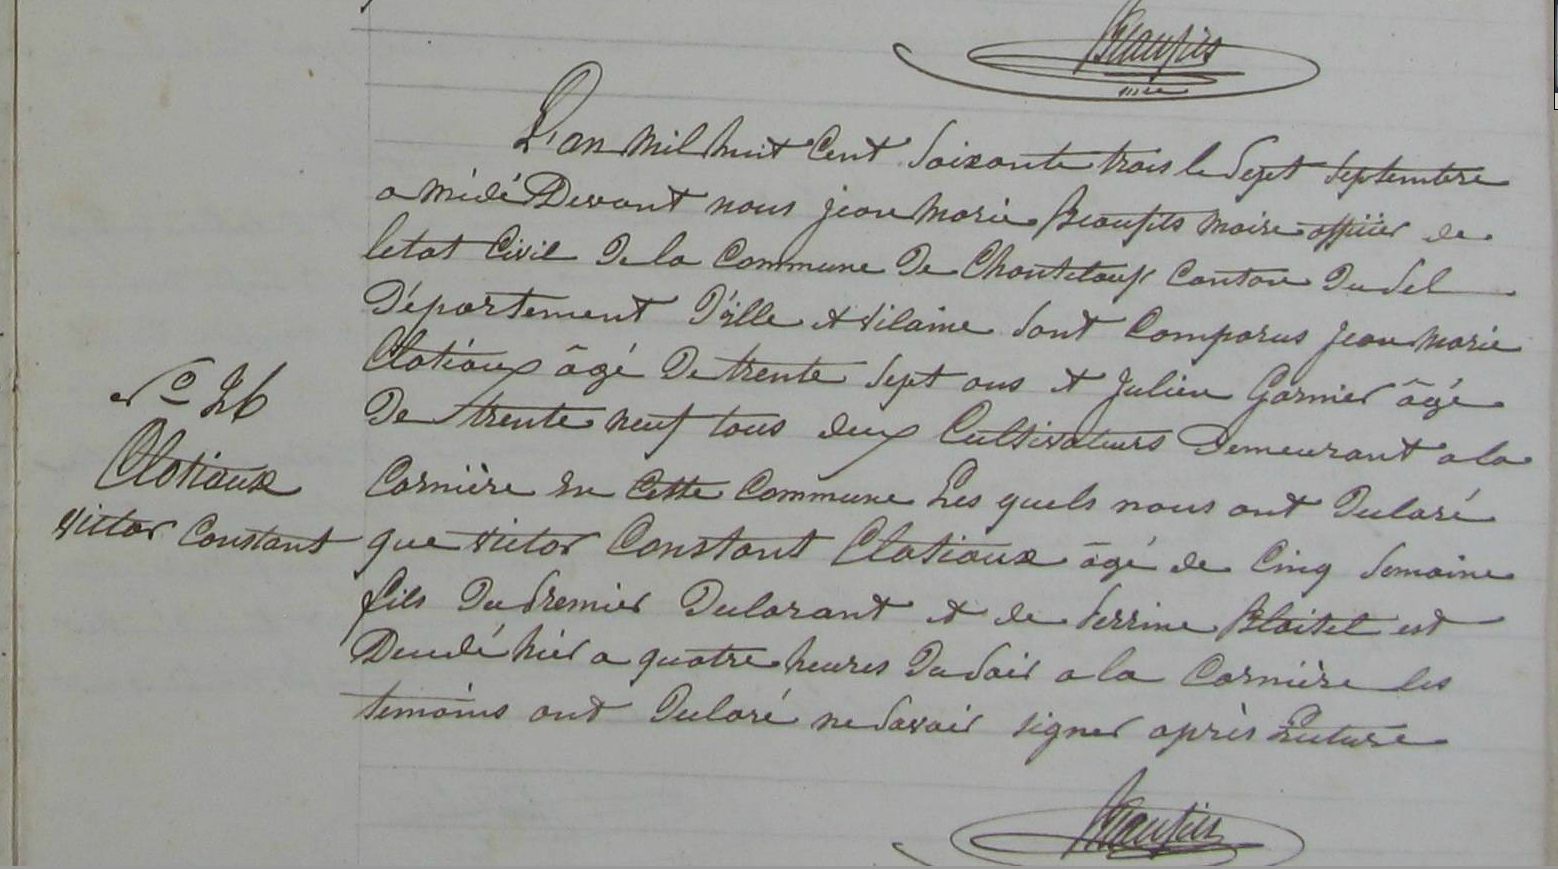 Beaufils
mre
L'an mil huit Cent soixante trois le sept septembre
a midi Devant nous jean marie Beaufils maire officier de
letat Civil De la Commune De Chanteloup Canton du sel
Département D'ille et vilaine sont Comparus jean marie
Clotiaux âgé De trente sept ans et julien Garnier âgé
De trente neuf tous deux Cultivateurs Demeurant a la
Cornière En Cette Commune Les quels nous ont Declaré
N° 26
Clotiaux
victor Constant
que victor Constant Clotiaux âgé de Cinq semaine
fils du premier Declarant et de perrine Blaitel est
Decedé hier a quatre heures du soir a la Cornière les
temoins ont Declaré ne savoir signer après Lecture
Beaufils